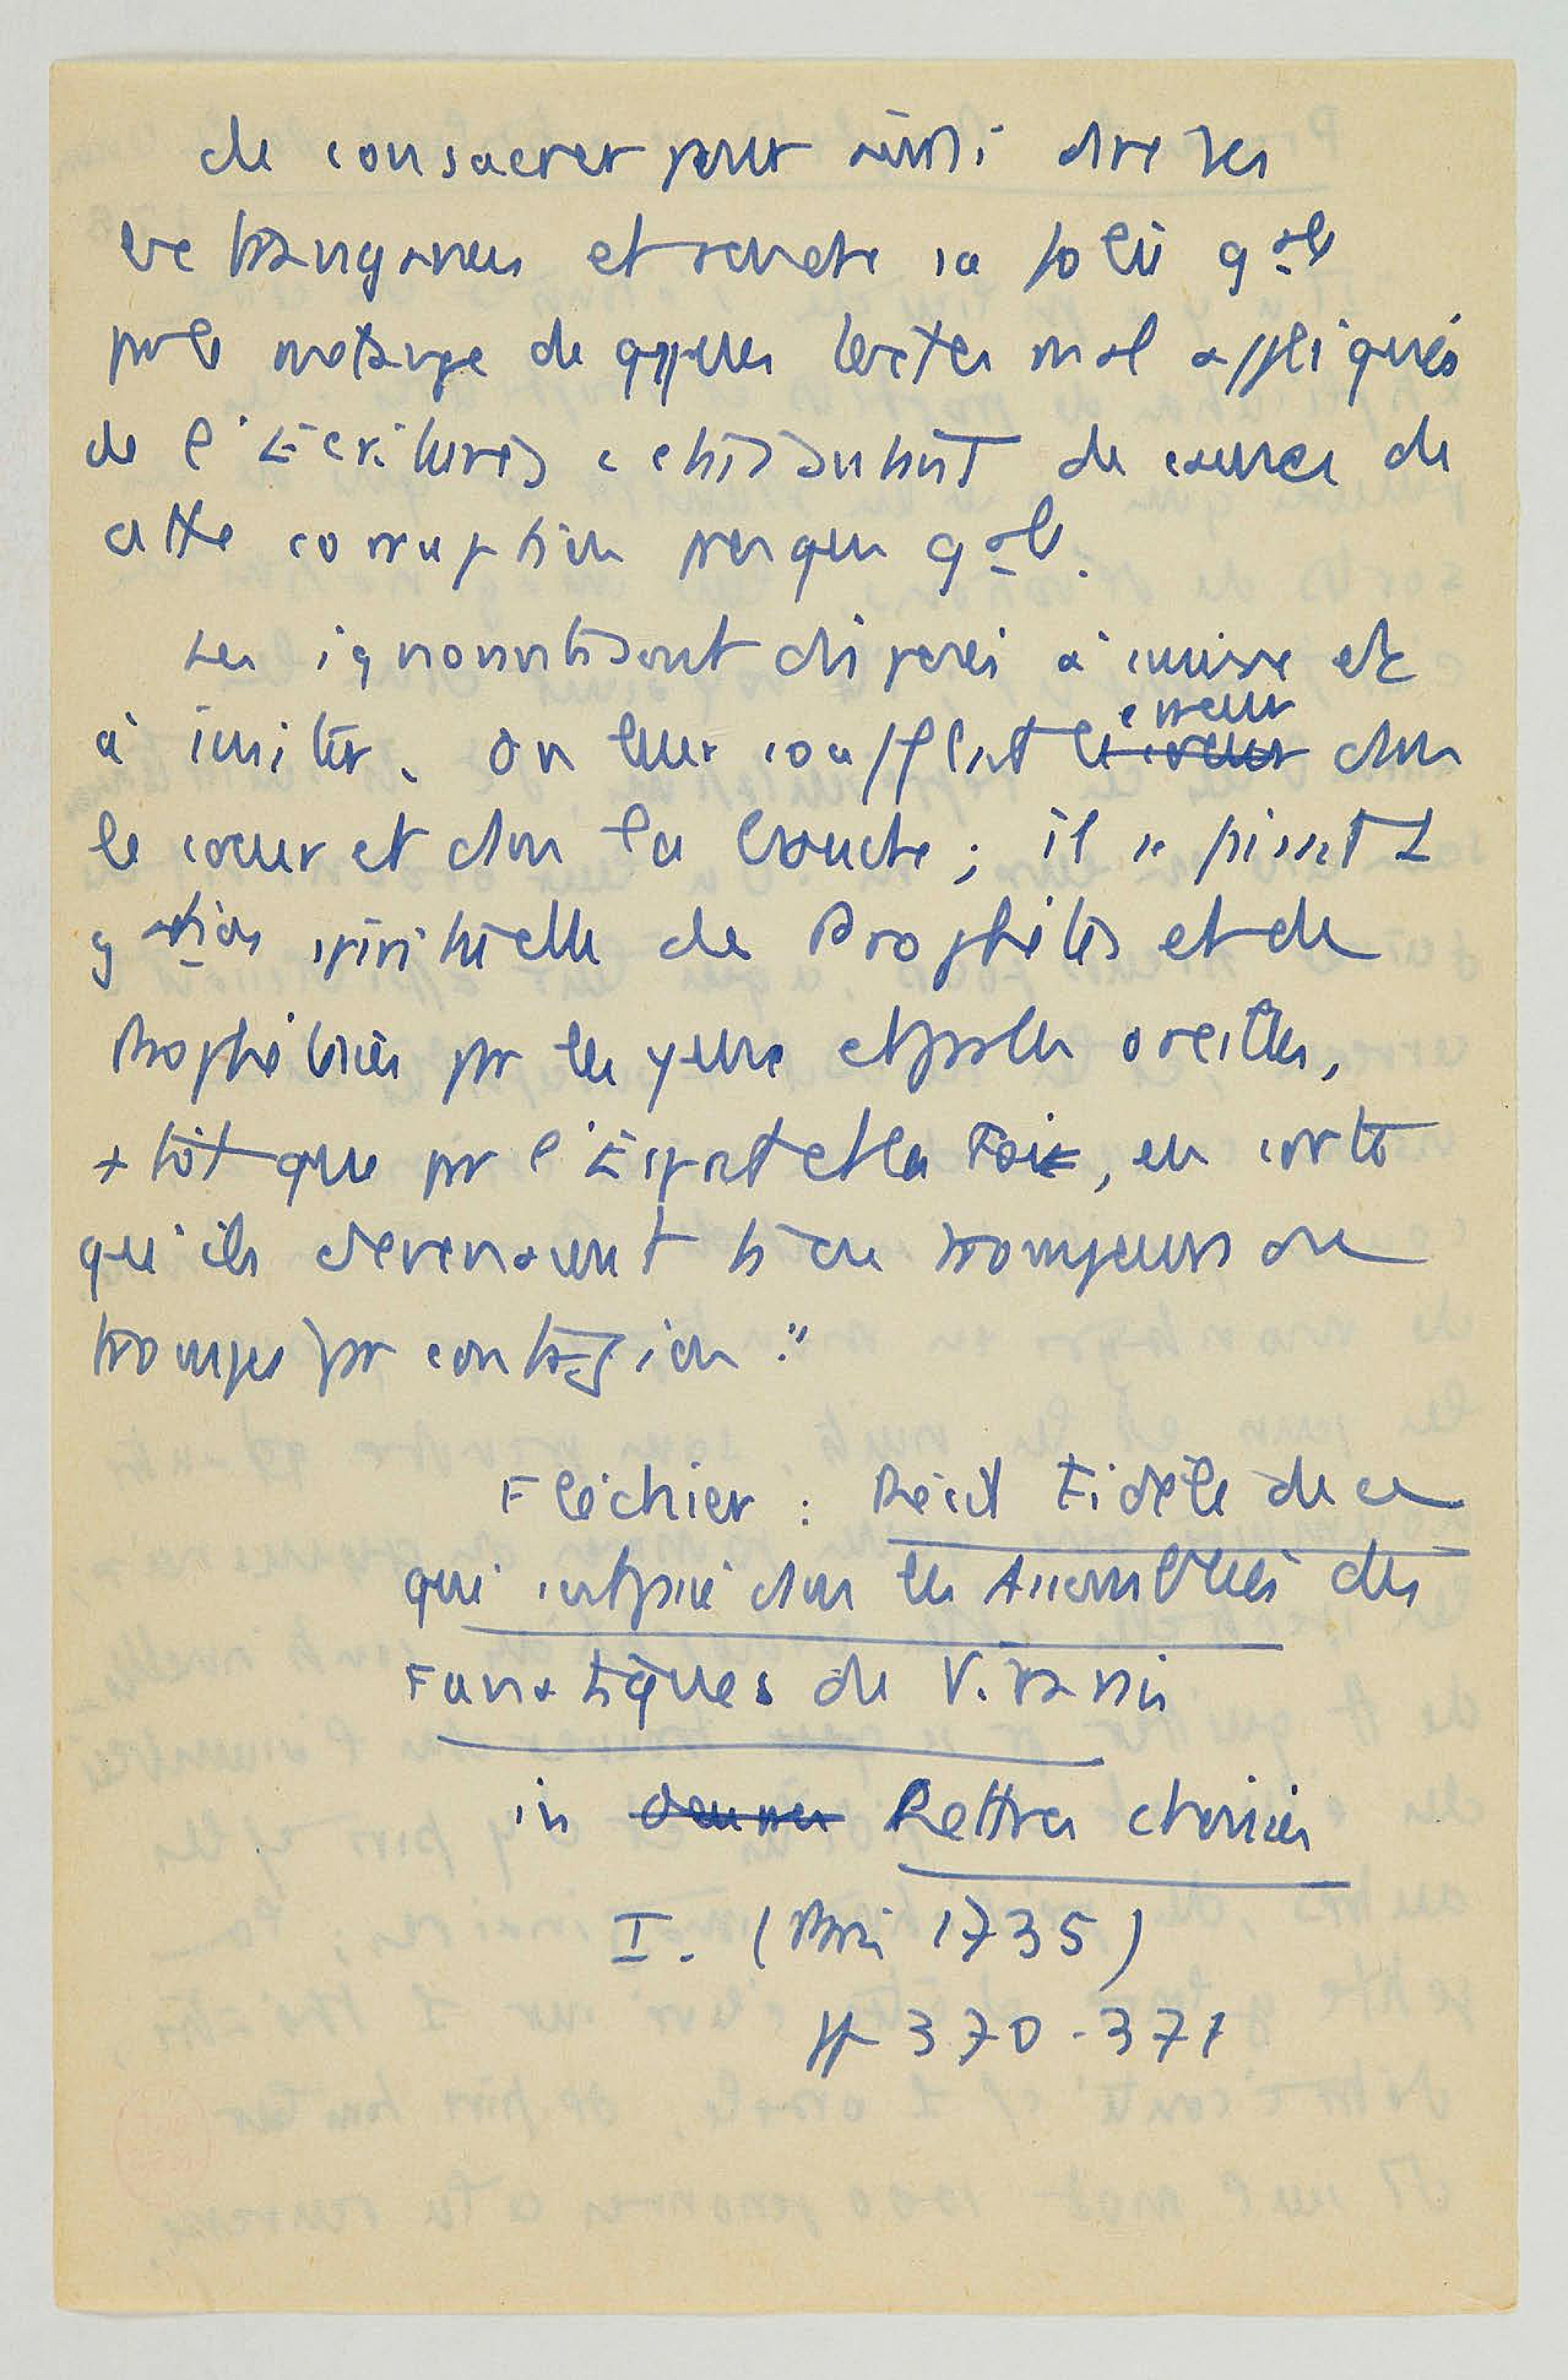 de consacrer pour ainsi dire ses
extravagances et rendre sa folie gale
par le mélange de qques textes mal appliqués
de l'Écritures ; ces sont de causes de
cette corruption presque gale.
Les ignorants sont disposés à croire et
à imiter. On leur soufflait l'erreur dans
le cœur et dans la bouche ; il se faisait 1
gation spirituelle de Prophètes et de
Prophétesses par les yeux et par les oreilles,
+ tôt que par l'Esprit et la Foi, en sorte
qu'ils devenaient ts ou trompeurs ou
trompés par contagion."
Fléchier : Récit Fidèle de ce
qui s'est passé dans les Assemblées des
Fanatiques du Vivarais
in Lettres choisies
I. (Paris 1735)
pp 370-371